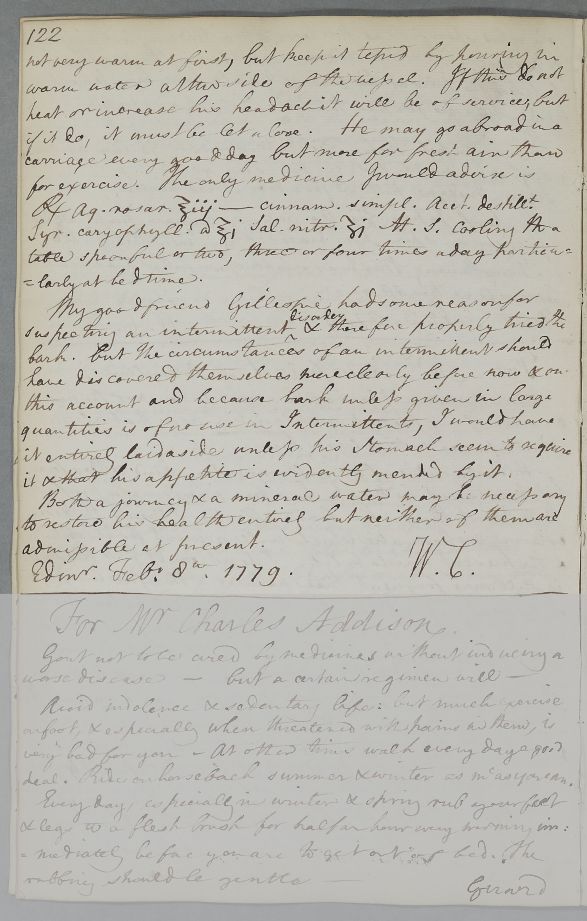 122
not very warm at first, but keep it tepid by pouring in
warm water at the side of the vessel. If this do not
heat or increase his headach it will be of service; but
if it do, it must be let alone. He may go abroad in a
carriage every good day but more for fresh air than
for exercise. The only medicine I would advise is
℞ Aq. rosar. ʒiij — cinnam. simpl. Acet. destillt
Syr. caryophyll. a ʒj Sal. nitr. ʒj M. S. Cooling
table spoonful or two, three or four times a day particu=
=larly at bed time.
My good friend Gillespie had some reason for
suspecting an intermittent disorder & therefore properly tried the
bark. but the circumstances of an intermittent should
have discovered themselves more clearly before now & on
this account and because bark unless given in large
quantities is of no use in Intermittents, I would have
it entirel laid aside unless his Stomach seem to require
it & that his appetite is evidently mended by it.
Both a journey & a mineral water may be necessary
to restore his health entirel but neither of them are
admissible at present.
Edinr. Feb. 8th. 1779. W. C.
For Mr Charles Addison.
Gout not to be cured by medicines without inducing a
worse disease — but a certain regimen will —
Avoid indolence & sedentary life: but much exercise
on foot, & especially when threatened with pains in them, is
very bad for you — At other times walk every day a good
deal. Ride on horseback summer & winter as mh as you can.
Every day, especially in winter & spring rub your feet
& legs wt a flesh brush for half an hour every morning im:
=mediately before you are to get out of bed. The
rubbing should be gentle —